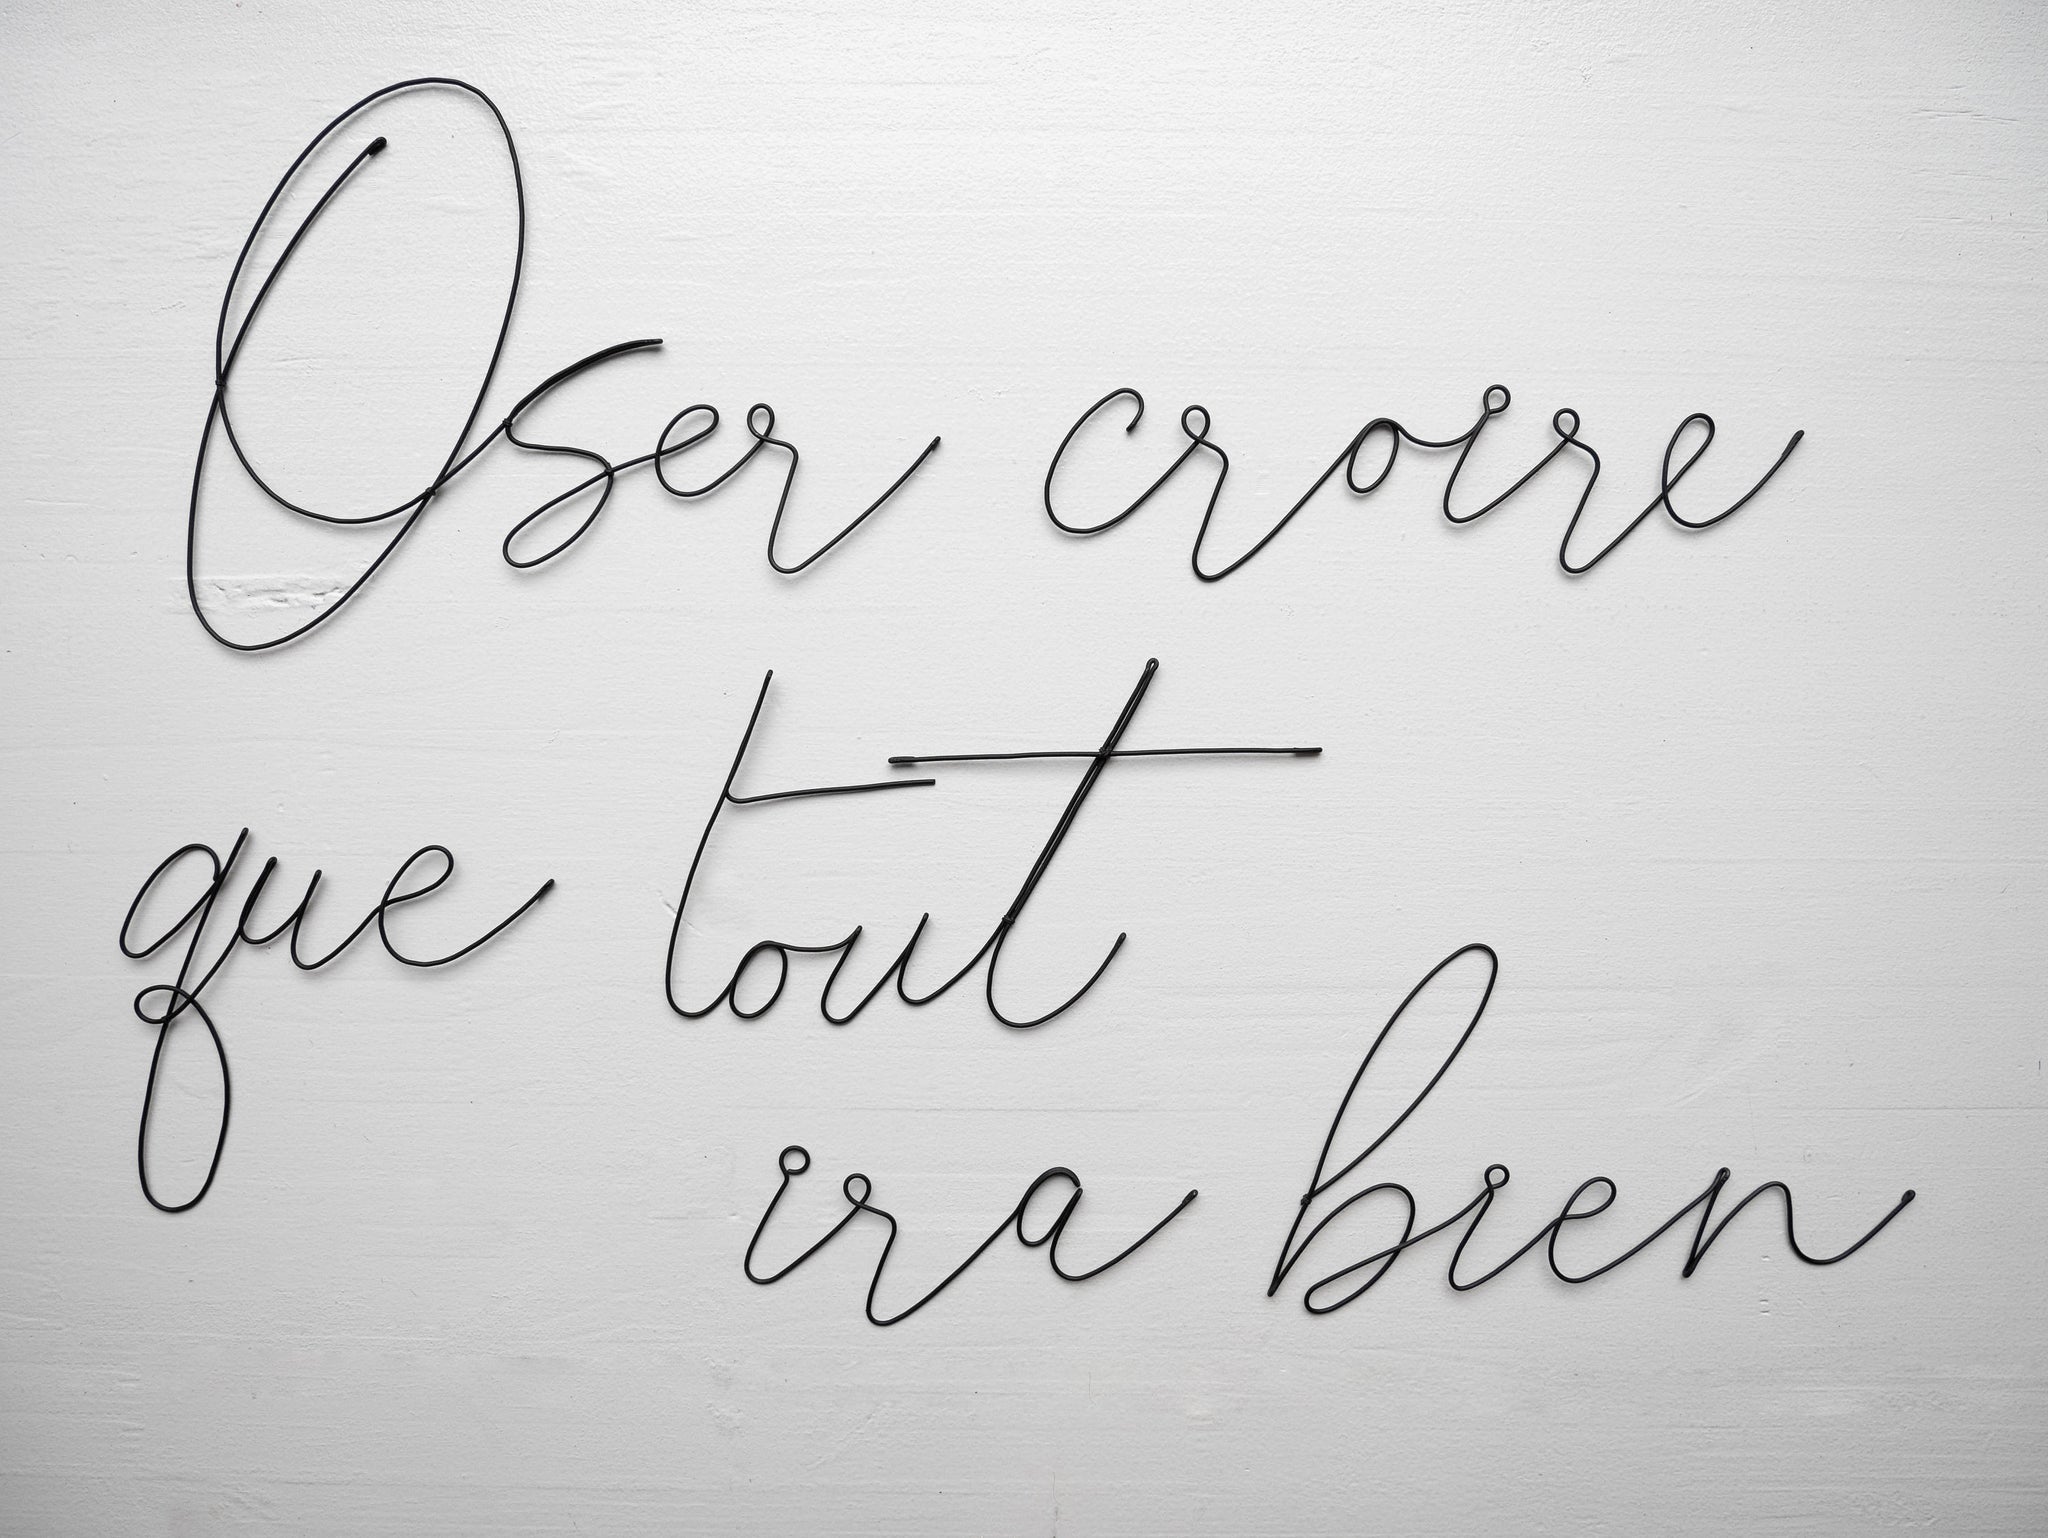 Oser croire
que tout
ira bien